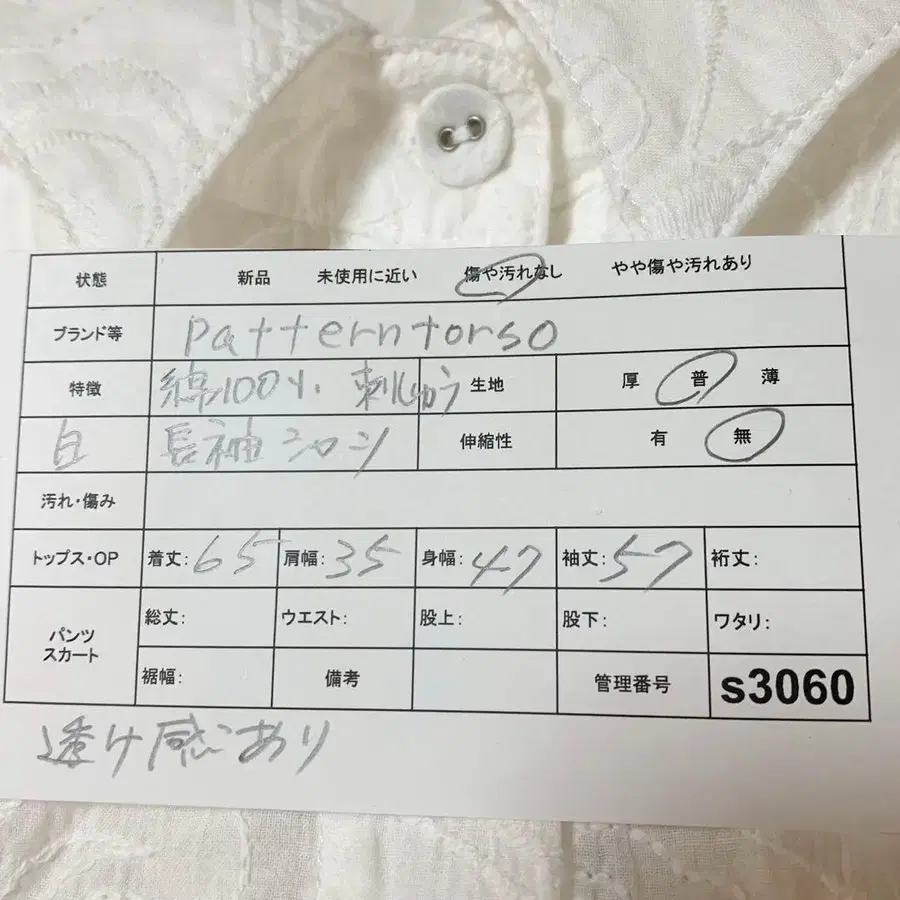 状態 新品 未使用に近い 傷や汚れなし やや傷や汚れあり
ブランド等 patterntorso
特徴 綿100% 刺しゅう 生地 厚 普 薄
白 長袖シャツ 伸縮性 有 無
汚れ・傷み
トップス・OP 着丈:65 肩幅:35 身幅:47 袖丈:57 裄丈:
パンツ スカート 総丈: ウエスト: 股上: 股下: ワタリ:
裾幅: 備考 管理番号 s3060
透け感あり